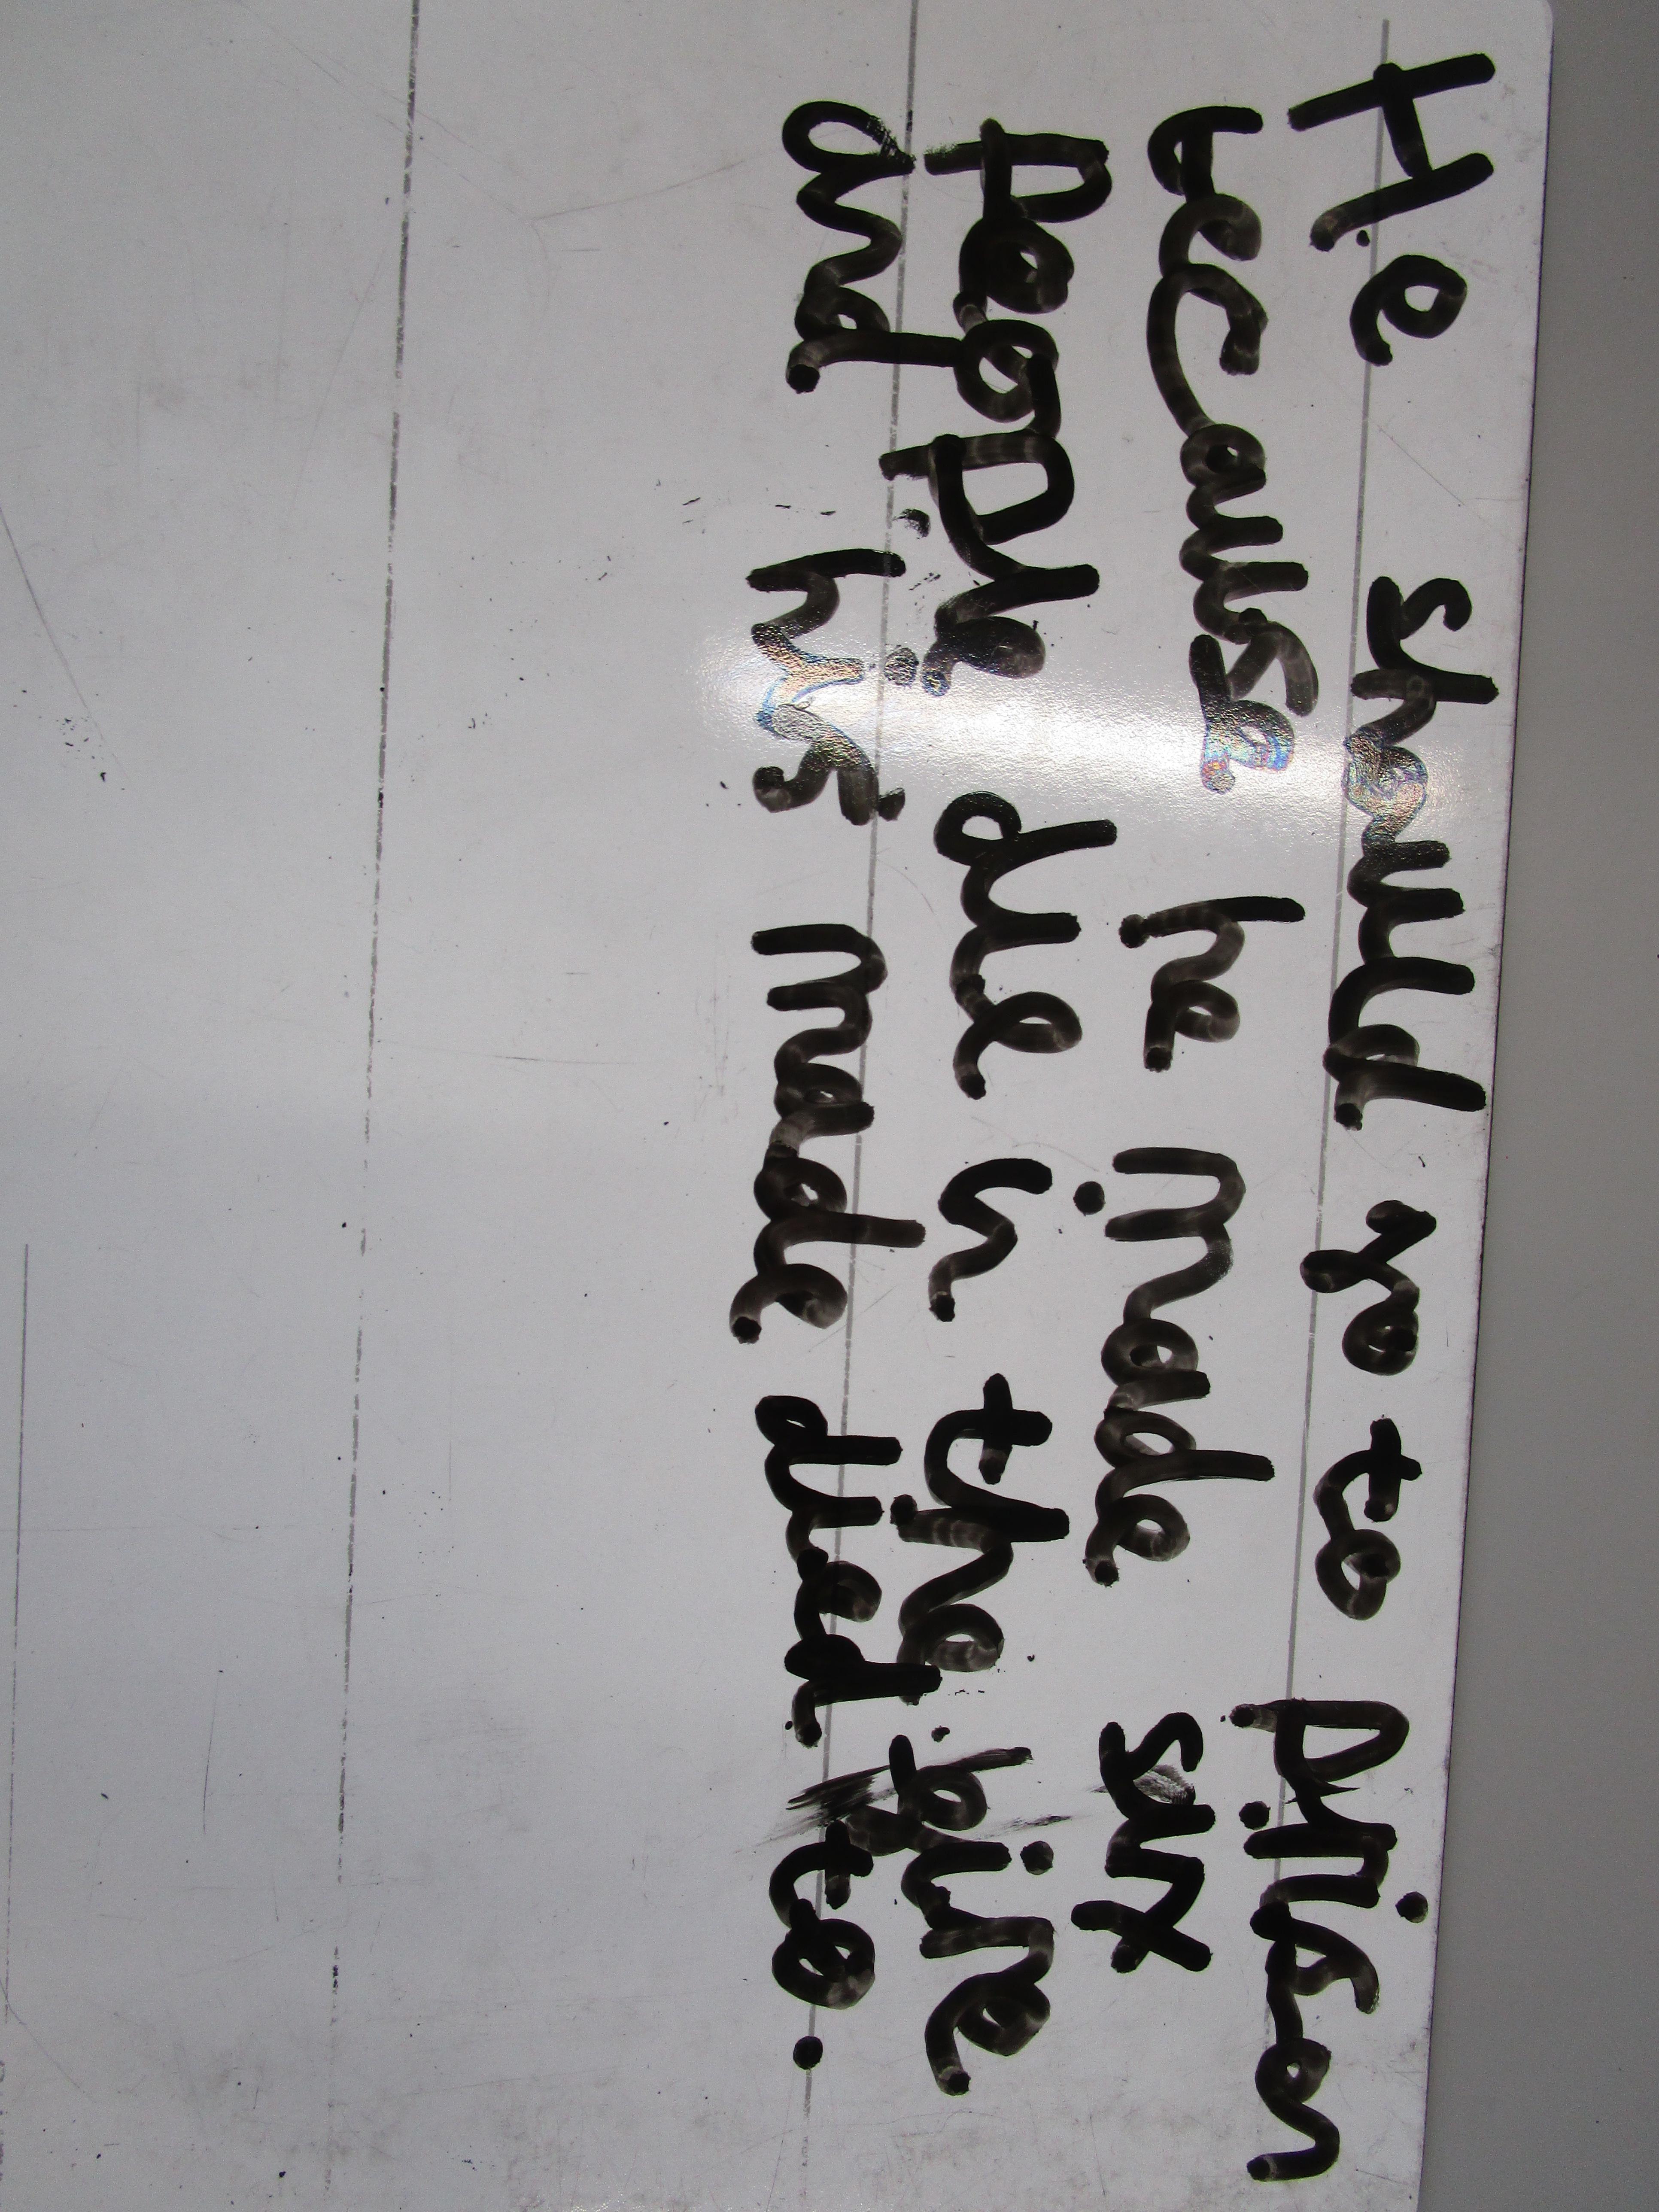 He should go to prison
because he made six
people die in the fire
and his made died to.